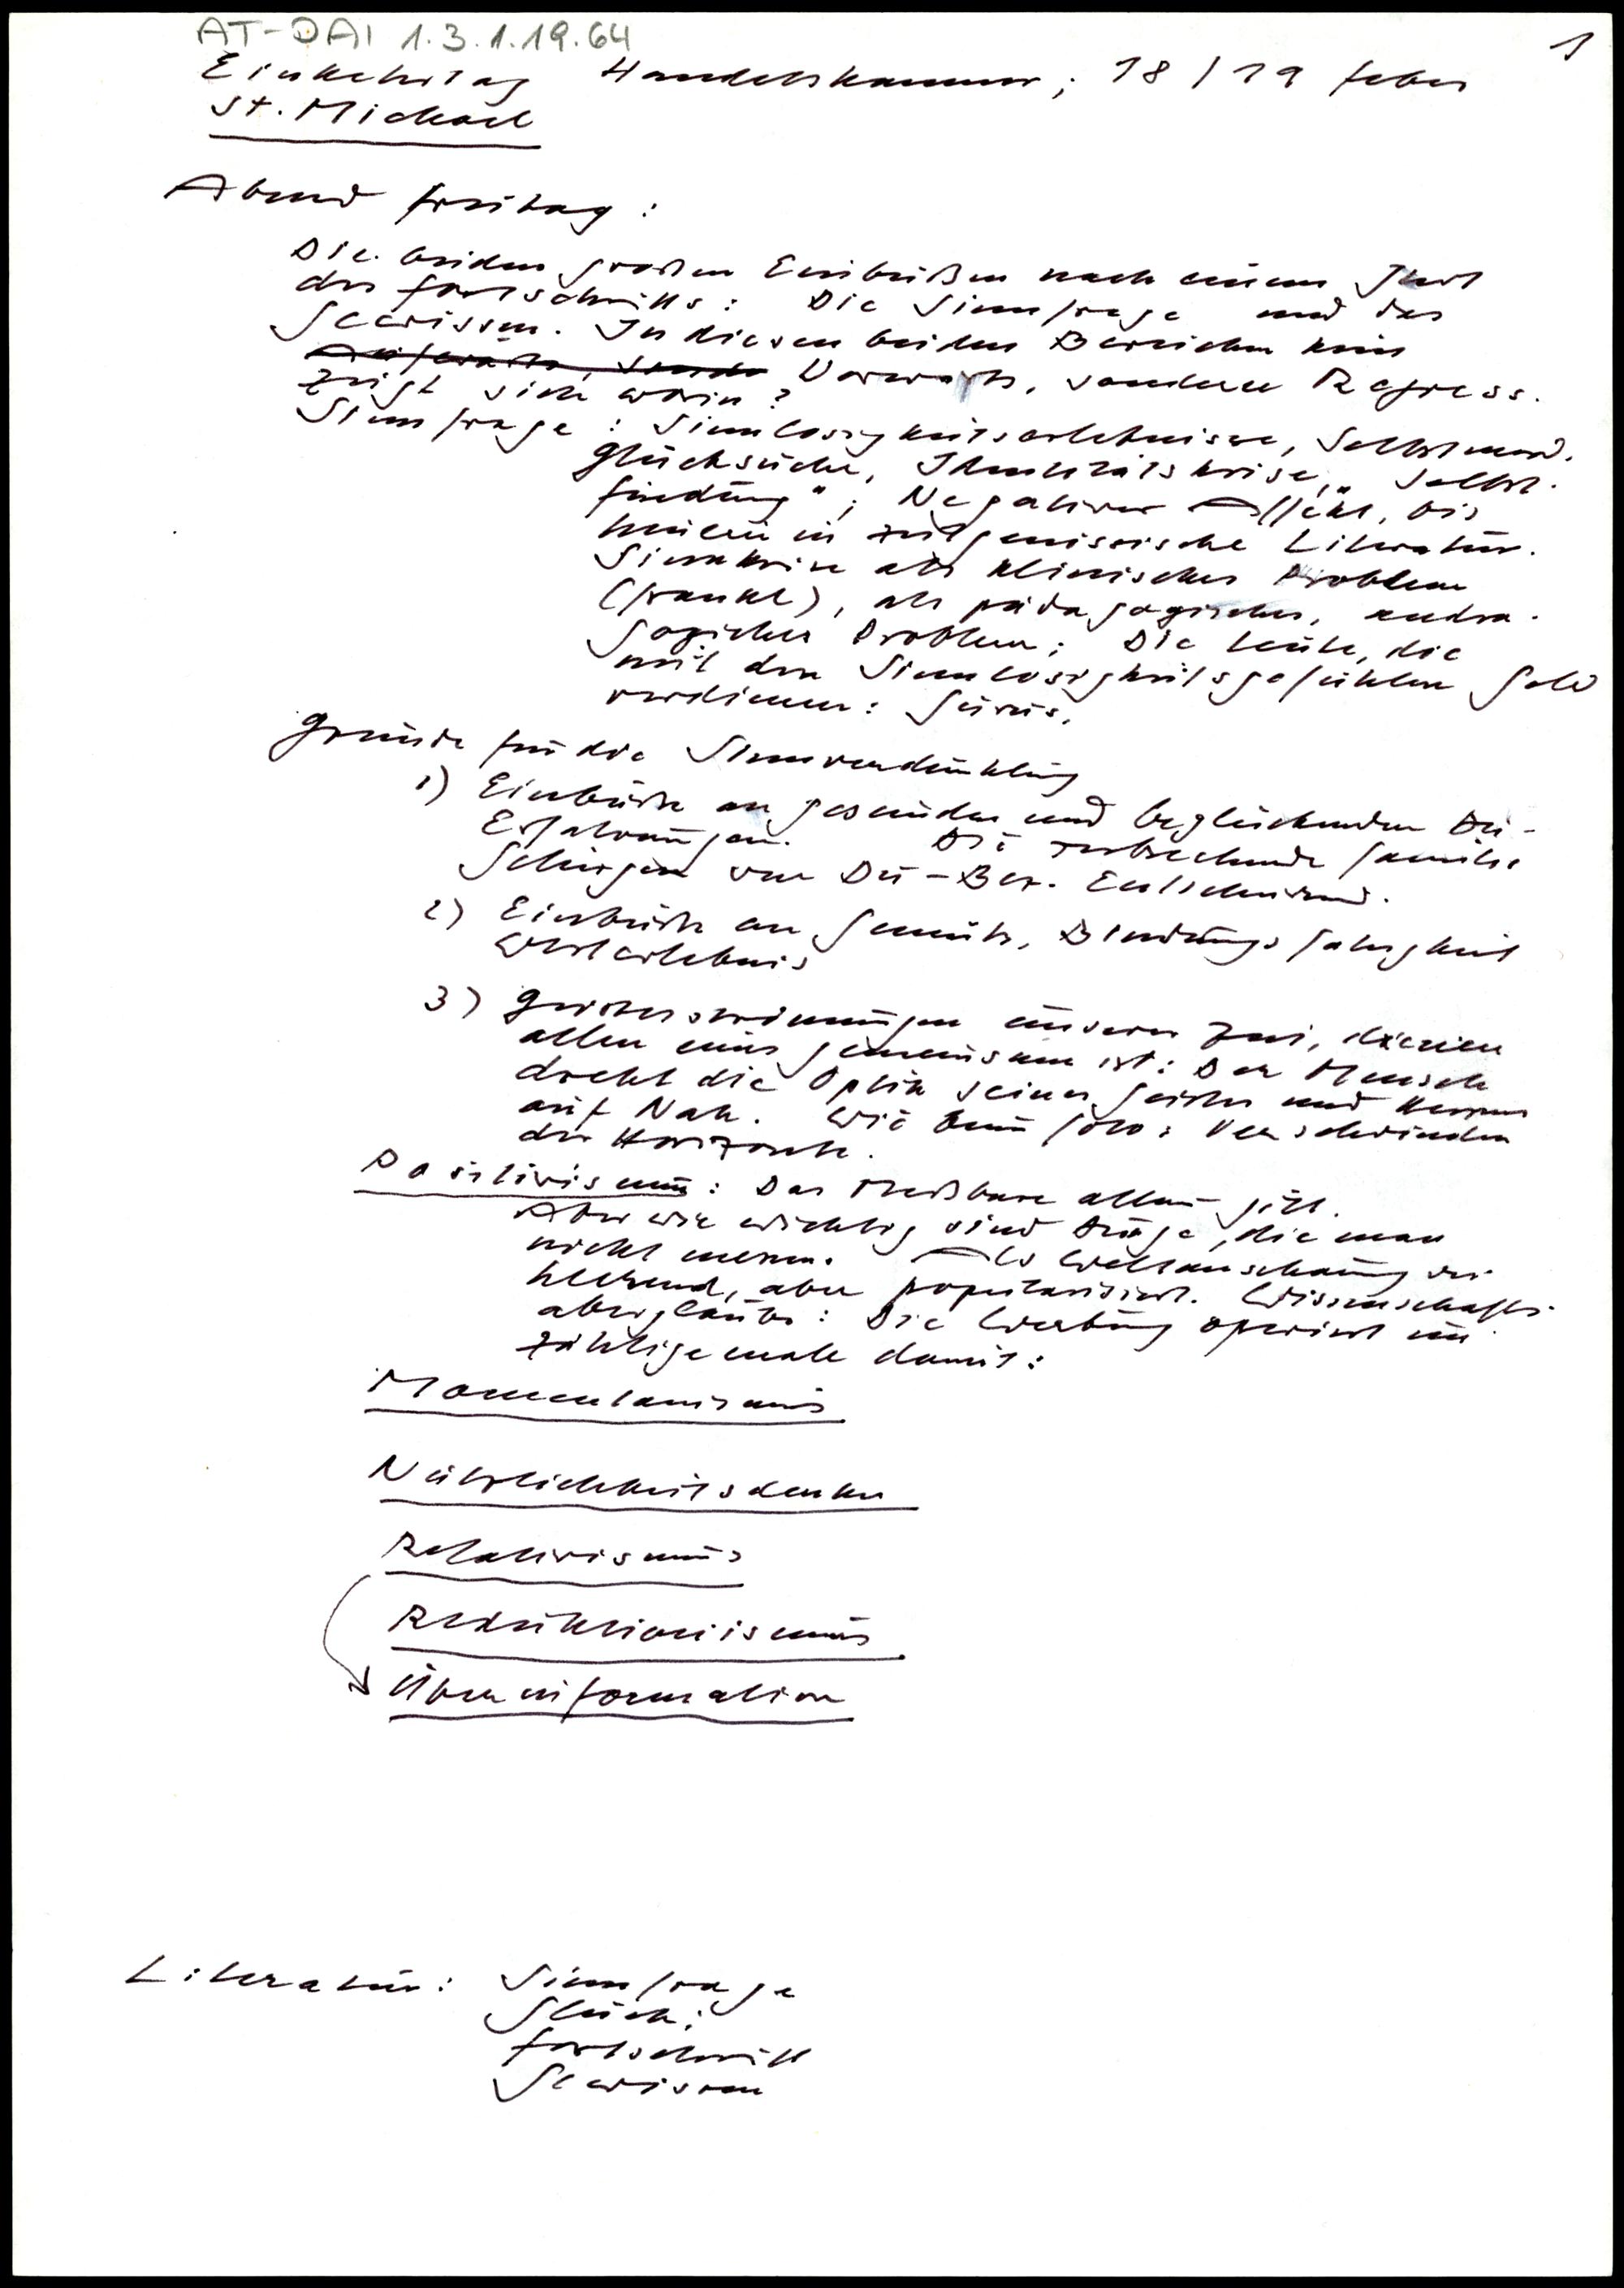 AT-DAI 1.3.1.19.64
1
Einkehrtag Handelskammer; 18/19 feber
St. Michael
Abend freitag:
Die beiden großen Einbußen nach einem
des fortschritts: Die Sinnfrage und das
Gewissen. In diesen beiden Bereichen kein
Aufwärts, sonde Vorwärts, sondern Regress.
Zeigt sich worin?
Sinnfrage: Sinnlosigkeitserlebnisse, Selbstmord.
Glücksuche, Identitätskrise, „Selbst-
findung"; Negativer Affekt, bis
hinein in zeitgenössische Literatur.
Sinnkrise als klinisches Problem
(frankl), als pädagogisches, andra-
gogisches Problem; Die Leute, die
mit den Sinnlosigkeitsgefühlen Geld
verdienen: Gurus.
Gründe für die Sinnverdunklung
1) Einbuße an gesunden und beglückenden Du-
Erfahrungen. Die zerbrechende familie
von Du-Bez.
2) Einbuße an Gemüt, Bindungsfähigkeit
Werterlebnis
3) Geistesströmungen unserer Zeit, denen
allen eins gemeinsam ist: Der Mensch
dreht die Optik seines Geistes und Herzens
auf Nah. Wie beim foto: Verschwinden
der Horizonte.
Positivismus: Das Meßbare allein gilt.
Aber wie wichtig sind Dinge, die man
nicht messen. Als Weltanschauung ver-
bleibend, aber popularisiert. Wissenschafts-
aberglaube: Die Werbung operiert un-
zählige male damit:
Momentanismus
Nützlichkeitsdenken
Relativismus
Reduktionismus
Überinformation
Literatur: Sinnfrage
Glück:
fortschritt
Gewissen